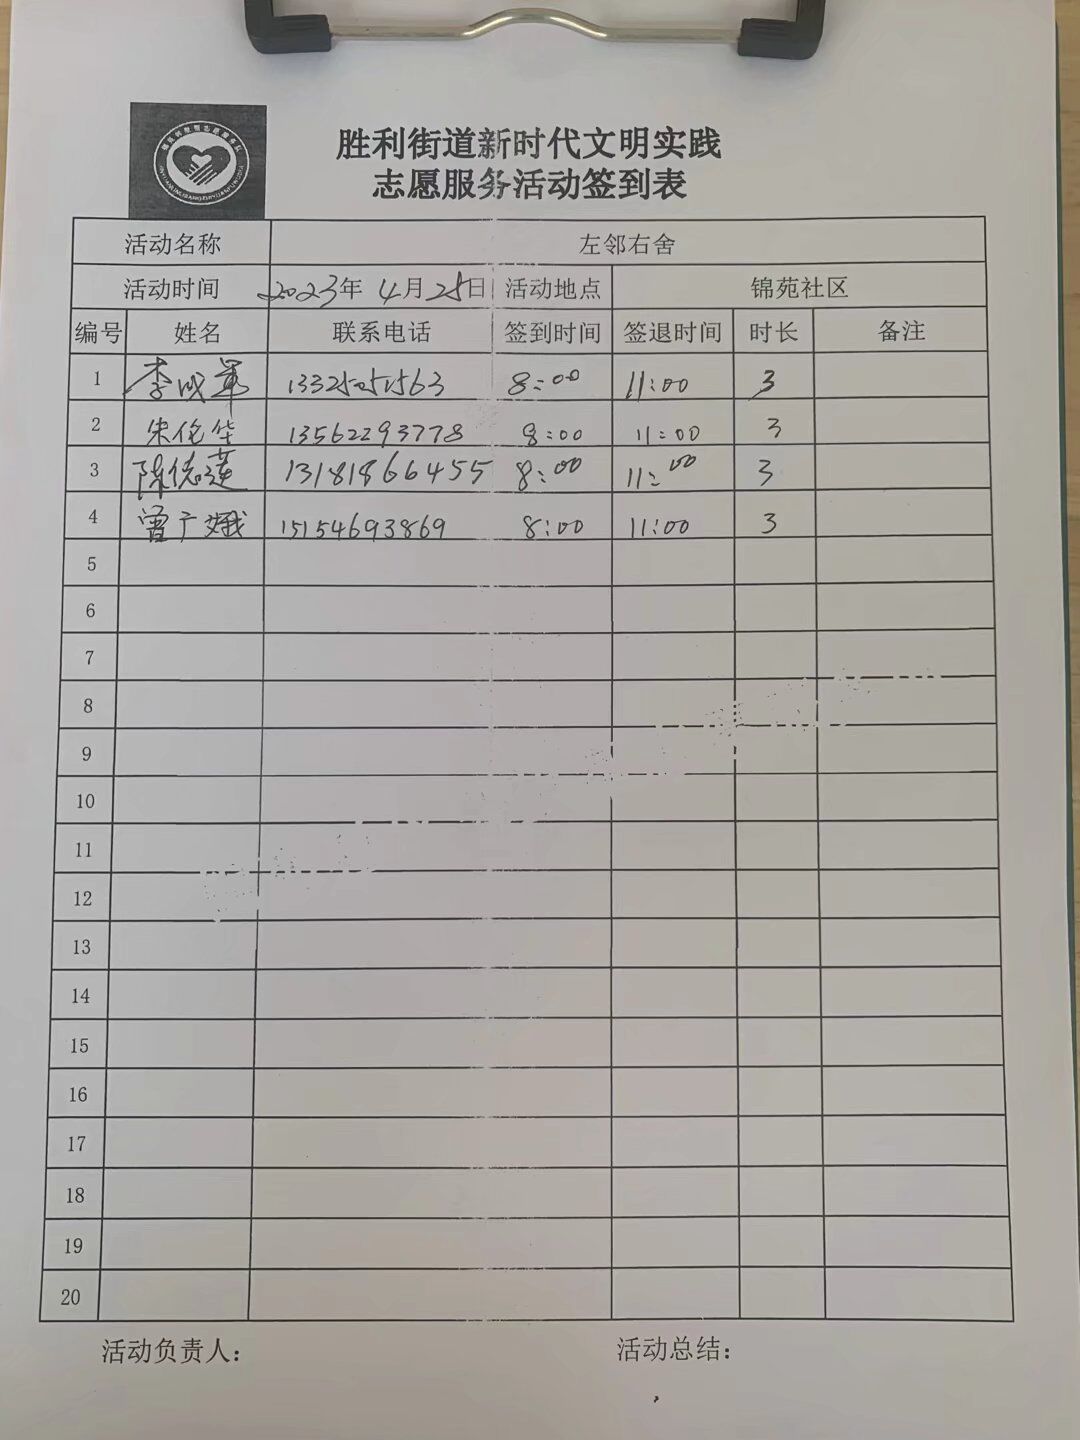 胜利街道新时代文明实践
志愿服务活动签到表
活动名称 左邻右舍
活动时间 2023年 4月25日 活动地点 锦苑社区
编号 姓名 联系电话 签到时间 签退时间 时长 备注
1 李成军 13325051563 8:00 11:00 3
2 朱伦华 13562293778 8:00 11:00 3
3 陈德莲 13181866455 8:00 11:00 3
4 曾广娥 15154693869 8:00 11:00 3
5
6
7
8
9
10
11
12
13
14
15
16
17
18
19
20
活动负责人: 活动总结: